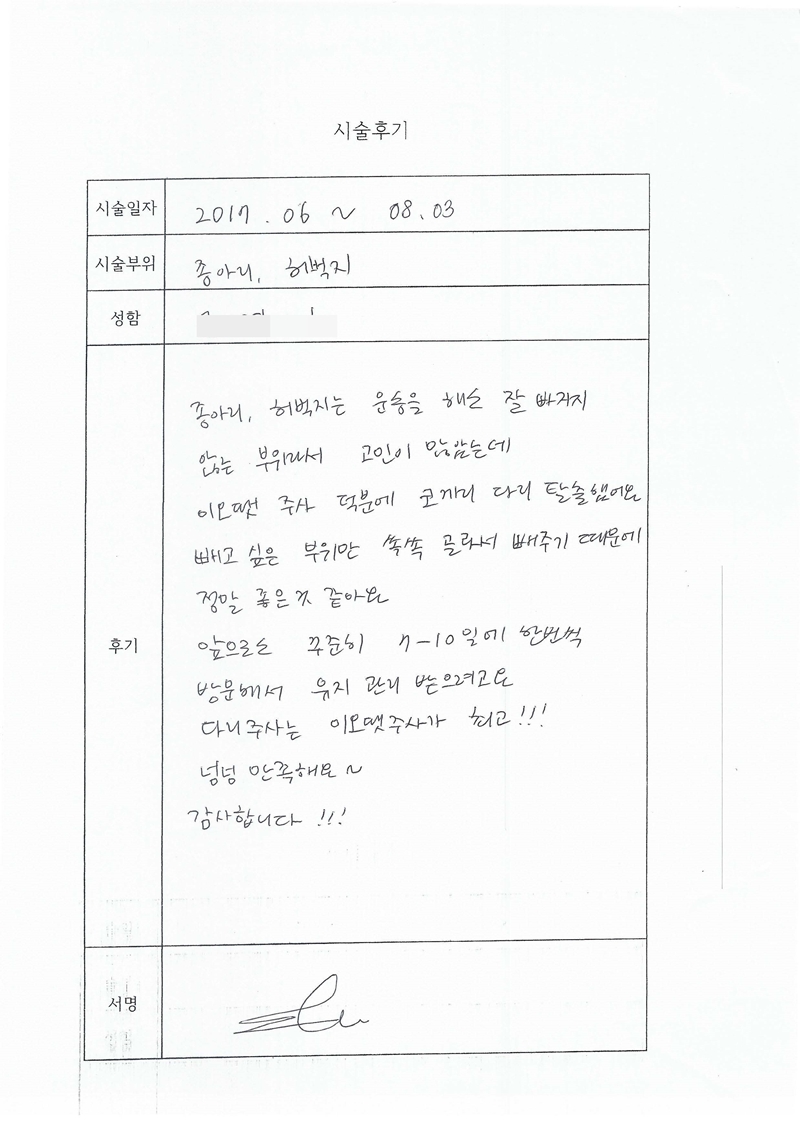 시술후기
시술일자 2017. 06 ~ 08.03
시술부위 종아리, 허벅지
성함
후기
종아리, 허벅지는 운동을 해도 잘 빠지지
않는 부위라서 고민이 많았는데
이모뗏 주사 덕분에 코끼리 다리 탈출했어요
빼고 싶은 부위만 쏙쏙 골라서 빼주기 때문에
정말 좋은것 같아요
앞으로도 꾸준히 7-10일에 한번씩
방문해서 유지 관리 받으려고요
다리주사는 이모뗏주사가 최고!!!
넝넝 만족해요~
감사합니다!!!
서명